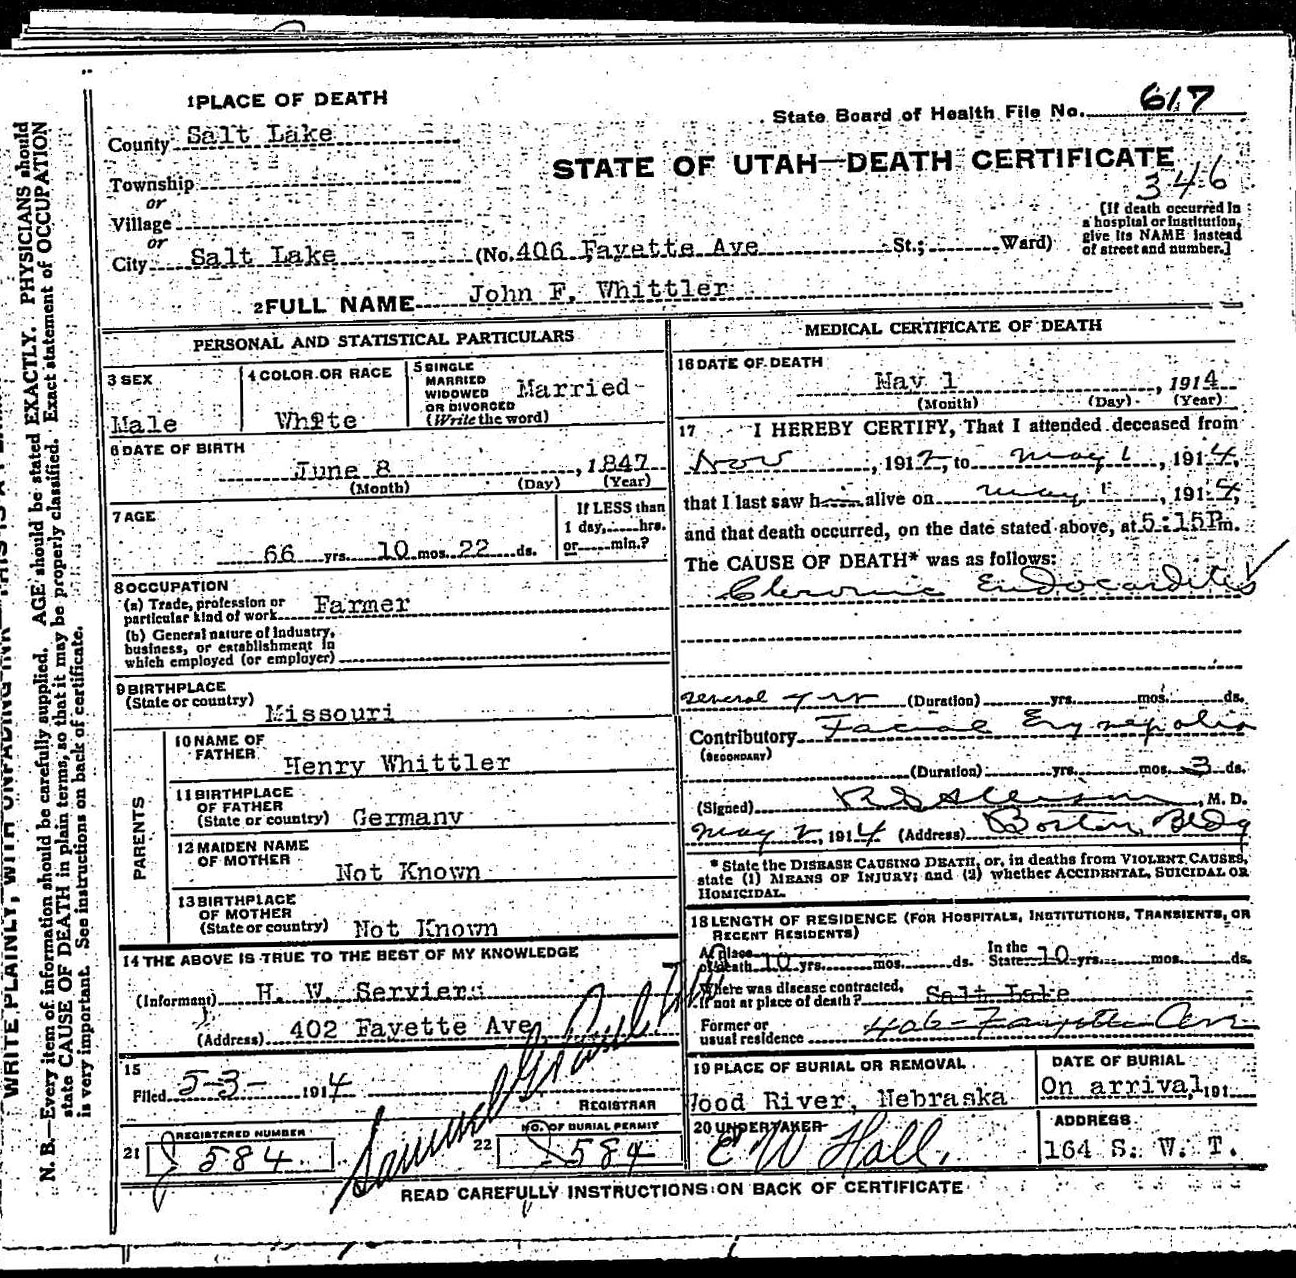 1 PLACE OF DEATH
State Board of Health File No. 617
County Salt Lake
STATE OF UTAH—DEATH CERTIFICATE
346
Township
or
Village
or
City Salt Lake (No. 406 Fayette Ave St.; Ward)
[If death occurred in
a hospital or institution,
give its NAME instead
of street and number.]
2 FULL NAME John F. Whittler
PERSONAL AND STATISTICAL PARTICULARS
3 SEX
Male
4 COLOR OR RACE
White
5 SINGLE
MARRIED
WIDOWED
OR DIVORCED
(Write the word)
Married
6 DATE OF BIRTH
June 8, 1847
(Month) (Day) (Year)
7 AGE
66 yrs. 10 mos. 22 ds.
If LESS than
1 day, hrs.
or min.?
8 OCCUPATION
(a) Trade, profession or
particular kind of work Farmer
(b) General nature of industry,
business, or establishment in
which employed (or employer)
9 BIRTHPLACE
(State or country)
Missouri
PARENTS
10 NAME OF
FATHER
Henry Whittler
11 BIRTHPLACE
OF FATHER
(State or country) Germany
12 MAIDEN NAME
OF MOTHER
Not Known
13 BIRTHPLACE
OF MOTHER
(State or country) Not Known
14 THE ABOVE IS TRUE TO THE BEST OF MY KNOWLEDGE
(Informant) H. W. Serviers
(Address) 402 Fayette Ave
15
Filed 5-3- 1914
Samuel G. Paul
REGISTRAR
21 REGISTERED NUMBER
584
22 NO. OF BURIAL PERMIT
584
MEDICAL CERTIFICATE OF DEATH
16 DATE OF DEATH
May 1, 1914
(Month) (Day) (Year)
17 I HEREBY CERTIFY, That I attended deceased from
Nov, 1912, to May 1, 1914,
that I last saw h alive on May 1, 1914,
and that death occurred, on the date stated above, at 5:15P m.
The CAUSE OF DEATH* was as follows:
Chronic Endocarditis
several yrs (Duration) yrs. mos. ds.
Contributory Facial Erysipelas
(SECONDARY)
(Duration) yrs. mos. 3 ds.
(Signed) M. D.
May 2, 1914 (Address) Boston Bldg
* State the DISEASE CAUSING DEATH, or, in deaths from VIOLENT CAUSES,
state (1) MEANS OF INJURY; and (2) whether ACCIDENTAL, SUICIDAL OR
HOMICIDAL.
18 LENGTH OF RESIDENCE (FOR HOSPITALS, INSTITUTIONS, TRANSIENTS, OR
RECENT RESIDENTS)
At place
of death 10 yrs. mos. ds.
In the
State 10 yrs. mos. ds.
Where was disease contracted,
if not at place of death? Salt Lake
Former or
usual residence 406 Fayette Ave
19 PLACE OF BURIAL OR REMOVAL
Wood River, Nebraska
DATE OF BURIAL
On arrival, 191
20 UNDERTAKER
E W Hall.
ADDRESS
164 S. W. T.
READ CAREFULLY INSTRUCTIONS ON BACK OF CERTIFICATE
N. B.—Every item of information should be carefully supplied. AGE should be stated EXACTLY. PHYSICIANS should
state CAUSE OF DEATH in plain terms, so that it may be properly classified. Exact statement of OCCUPATION
is very important. See instructions on back of certificate.
WRITE PLAINLY, WITH UNFADING INK